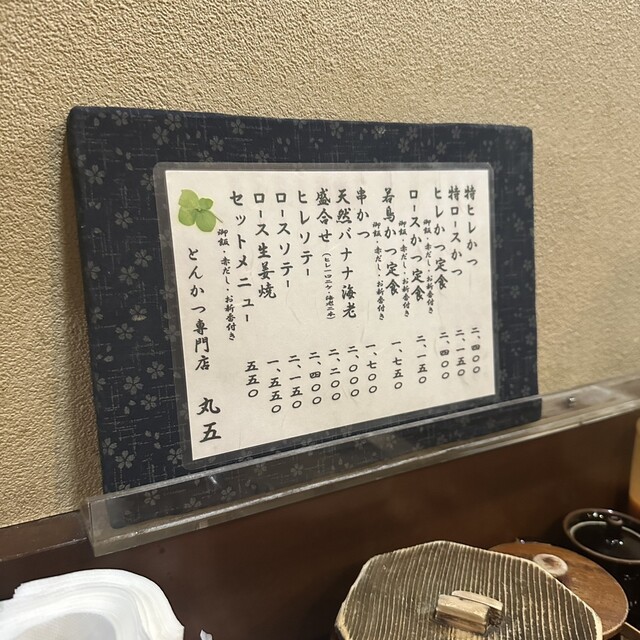 特ヒレかつ 二、四〇〇
特ロースかつ 二、一五〇
ヒレかつ定食 二、四〇〇
御飯・赤だし・お新香付き
ロースかつ定食 二、一五〇
御飯・赤だし・お新香付き
若鳥かつ定食 一、七五〇
御飯・赤だし・お新香付き
串かつ 一、七〇〇
天然バナナ海老 二、〇〇〇
盛合せ (ヒレ一口二ケ・海老二本) 二、二〇〇
ヒレソテー 二、四〇〇
ロースソテー 二、一五〇
ロース生姜焼 一、五五〇
セットメニュー 五五〇
御飯・赤だし・お新香付き
とんかつ専門店 丸五